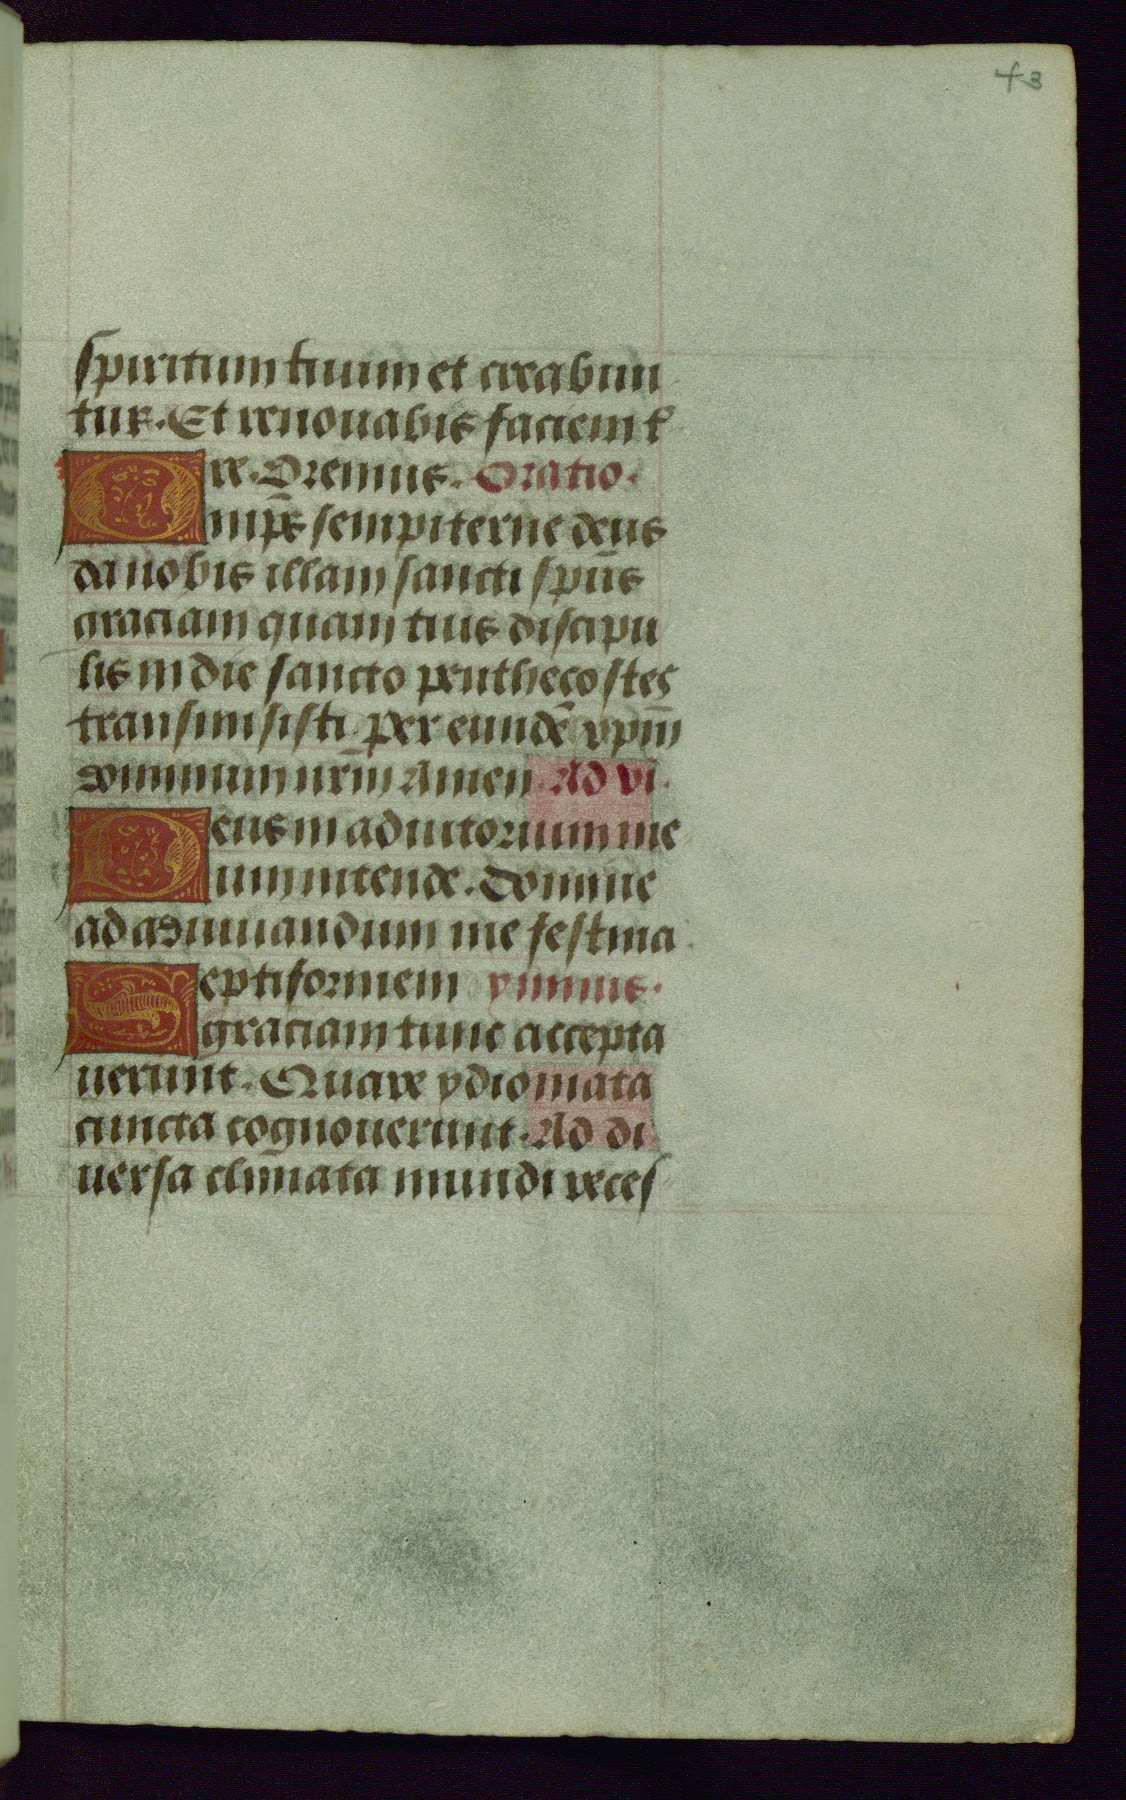 43
spiritum tuum et creabun
tur. Et renouabis faciem t̃
re. Oremus. Oratio.
Omp̅s sempiterne deus
da nobis illam sancti sp̅us
graciam quam tuis discipu
lis in die sancto penthecostes
transmisisti. per eundẽ xpm̅
dominum nr̅m Amen. Ad vi.
Deus in adiutorium me
um intende. Domine
ad adiuuandum me festina.
Septiformem ymnus.
graciam tunc accepta
uerunt. Quare ydiomata
cuncta cognouerunt. Ad di
uersa climata mundi reces